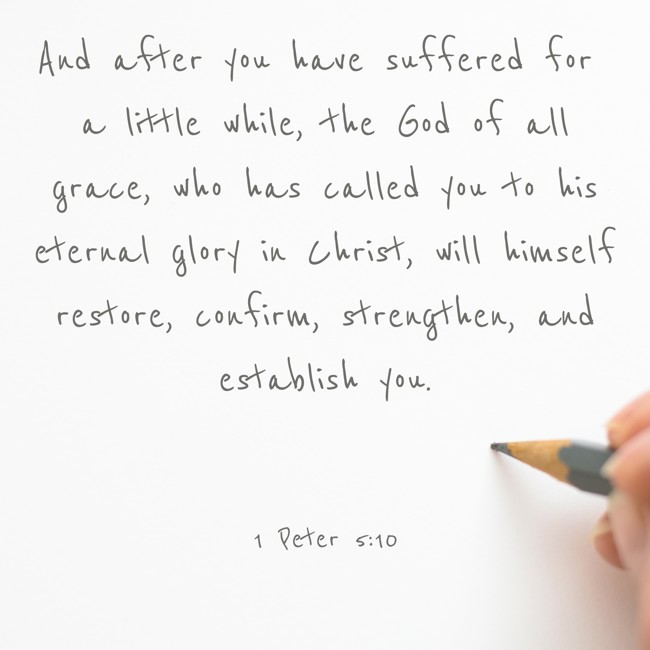 And after you have suffered for
a little while, the God of all
grace, who has called you to his
eternal glory in Christ, will himself
restore, confirm, strengthen, and
establish you.
1 Peter 5:10